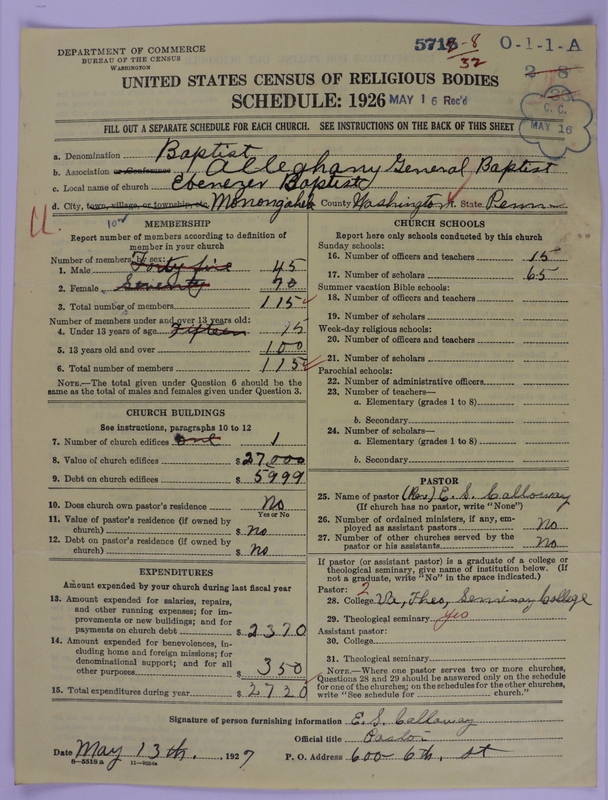 DEPARTMENT OF COMMERCE
BUREAU OF THE CENSUS
WASHINGTON
5718-8
32
O-1-1-A
2-8
UNITED STATES CENSUS OF RELIGIOUS BODIES
SCHEDULE: 1926
MAY 16 Rec'd
C. C.
MAY 16
FILL OUT A SEPARATE SCHEDULE FOR EACH CHURCH. SEE INSTRUCTIONS ON THE BACK OF THIS SHEET
a. Denomination Baptist
b. Association or Conference Alleghany General Baptist
c. Local name of church Ebenezer Baptist
d. City, town, village, or township, etc. Monongahela County Washington State Penn
MEMBERSHIP
Report number of members according to definition of
member in your church
Number of members by sex:
1. Male Forty five 45
2. Female Seventy 70
3. Total number of members 115
Number of members under and over 13 years old:
4. Under 13 years of age Fifteen 15
5. 13 years old and over 100
6. Total number of members 115
NOTE.—The total given under Question 6 should be the
same as the total of males and females given under Question 3.
CHURCH BUILDINGS
See instructions, paragraphs 10 to 12
7. Number of church edifices one 1
8. Value of church edifices $ 27000
9. Debt on church edifices $ 5999
10. Does church own pastor's residence No
Yes or No
11. Value of pastor's residence (if owned by
church) $ No
12. Debt on pastor's residence (if owned by
church) $ No
EXPENDITURES
Amount expended by your church during last fiscal year
13. Amount expended for salaries, repairs,
and other running expenses; for im-
provements or new buildings; and for
payments on church debt $ 2370
14. Amount expended for benevolences, in-
cluding home and foreign missions; for
denominational support; and for all
other purposes $ 350
15. Total expenditures during year $ 2720
CHURCH SCHOOLS
Report here only schools conducted by this church
Sunday schools:
16. Number of officers and teachers 15
17. Number of scholars 65
Summer vacation Bible schools:
18. Number of officers and teachers
19. Number of scholars
Week-day religious schools:
20. Number of officers and teachers
21. Number of scholars
Parochial schools:
22. Number of administrative officers
23. Number of teachers—
a. Elementary (grades 1 to 8)
b. Secondary
24. Number of scholars—
a. Elementary (grades 1 to 8)
b. Secondary
PASTOR
25. Name of pastor (Rev.) E. S. Calloway
(If church has no pastor, write "None")
26. Number of ordained ministers, if any, em-
ployed as assistant pastors No
27. Number of other churches served by the
pastor or his assistants No
If pastor (or assistant pastor) is a graduate of a college or
theological seminary, give name of institution below. (If
not a graduate, write "No" in the space indicated.)
Pastor: 2
28. College Va, Theo, Seminay College
29. Theological seminary yes
Assistant pastor:
30. College
31. Theological seminary
NOTE.—Where one pastor serves two or more churches,
Questions 28 and 29 should be answered only on the schedule
for one of the churches; on the schedules for the other churches,
write "See schedule for church."
Signature of person furnishing information E. S. Calloway
Official title Pastor
Date May 13th, 1927 P. O. Address 600 6th. st
8-5518a 11-9054a